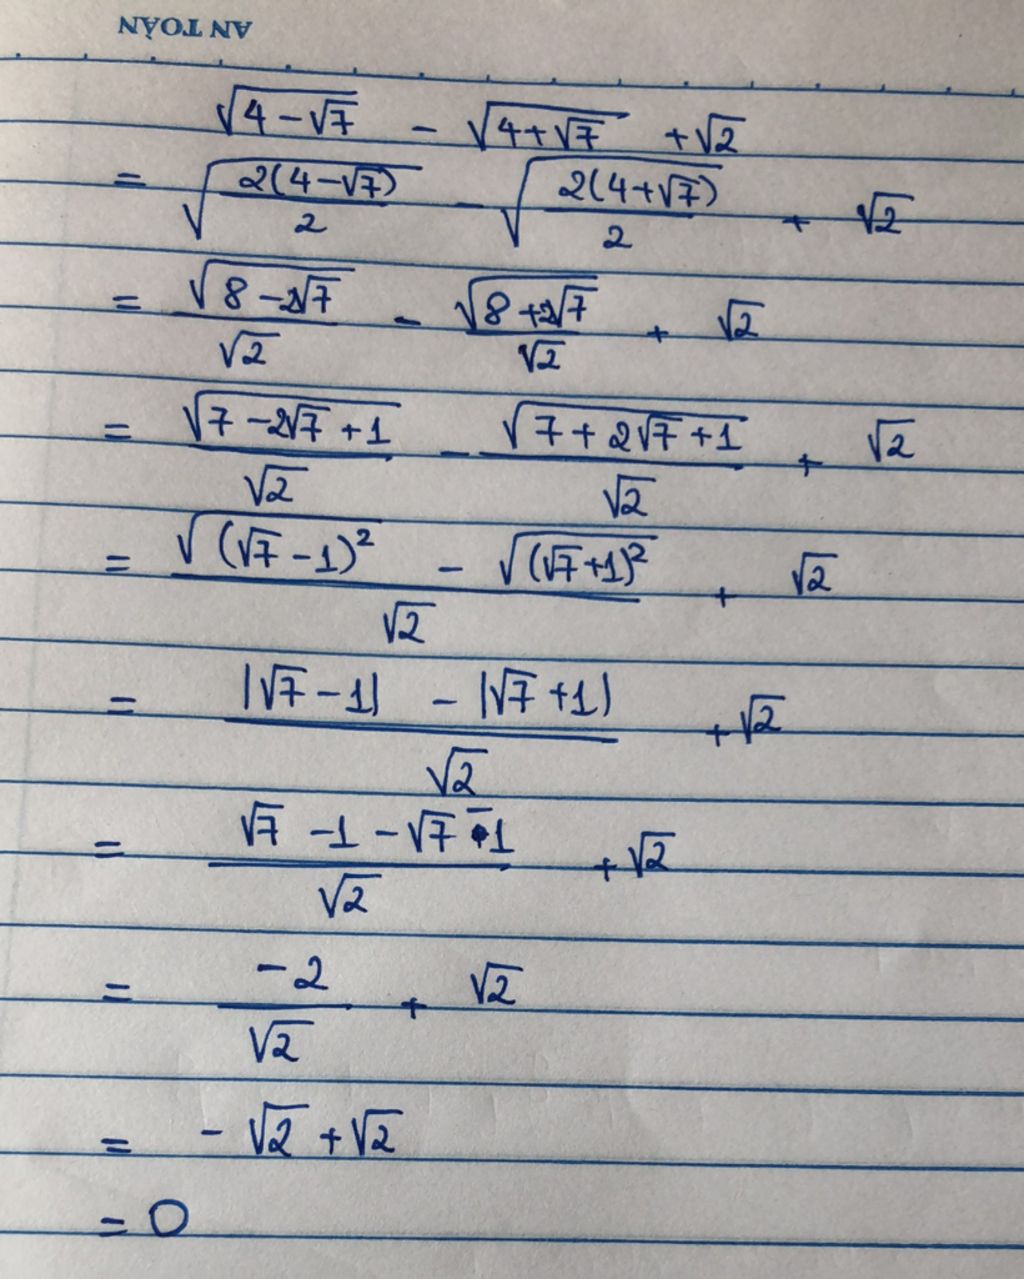 AN TOÀN
√(4 - √7) - √(4 + √7) + √2
= √(2(4 - √7)/2) - √(2(4 + √7)/2) + √2
= √(8 - 2√7)/√2 - √(8 + 2√7)/√2 + √2
= √(7 - 2√7 + 1)/√2 - √(7 + 2√7 + 1)/√2 + √2
= (√((√7 - 1)²) - √((√7 + 1)²))/√2 + √2
= (|√7 - 1| - |√7 + 1|)/√2 + √2
= (√7 - 1 - √7 - 1)/√2 + √2
= -2/√2 + √2
= -√2 + √2
= 0